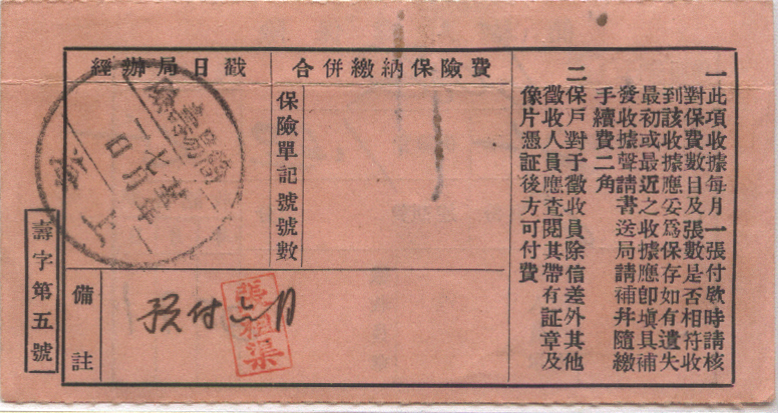 一此項收據每月一張付欵時請核
對保費數目及張數是否相符收
到該收據應妥爲保存如有遺失
最初或最近之收據應卽填具補
發收據聲請書送局請補幷隨繳
手續費二角
二保戶對于徵收員除信差外其他
徵收人員應查閱其帶有証章及
像片憑証後方可付費
合併繳納保險費
保險單記號號數
經辦局日戳
七月
一日
上
備註
預付
月
張祖渠
壽字第五號